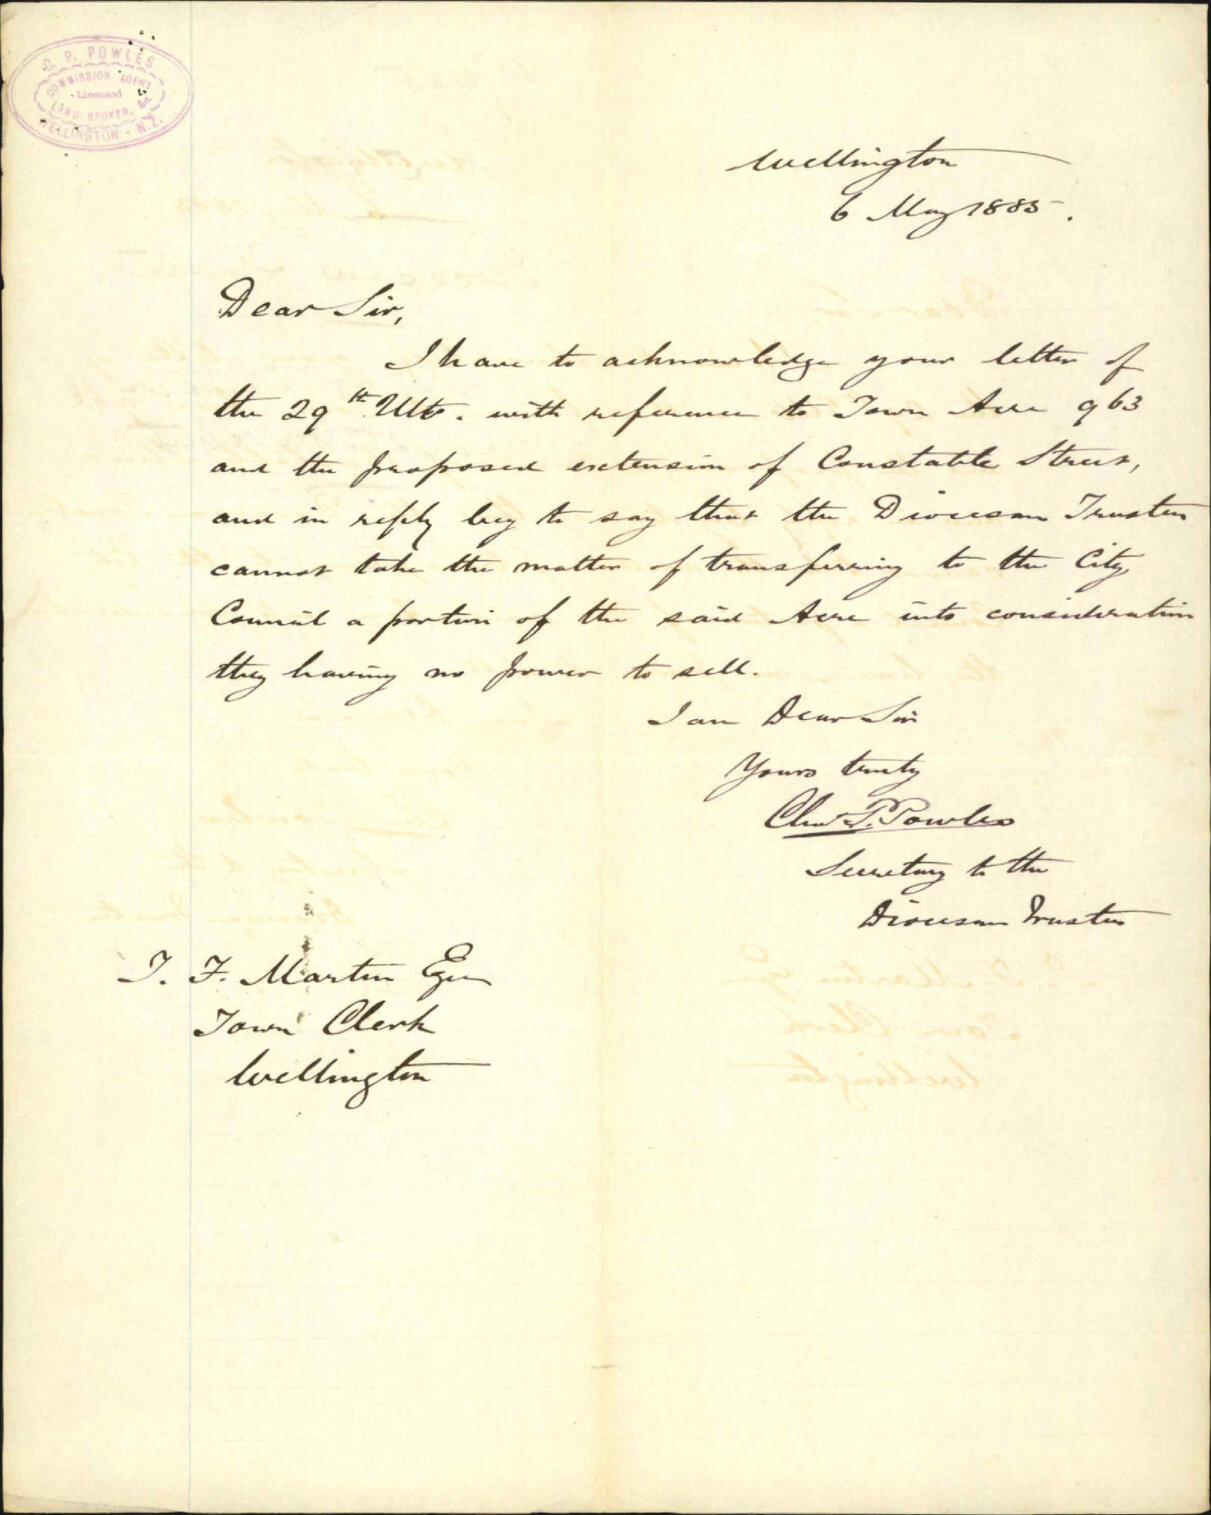 C. P. POWLES
COMMISSION AGENT
Licensed
LAND BROKER, &c.
WELLINGTON - N.Z.
Wellington
6 May 1885.
Dear Sir,
I have to acknowledge your letter of
the 29th Ulto. with reference to Town Acre 963
and the proposed extension of Constable Street,
and in reply beg to say that the Diocesan Trustees
cannot take the matter of transferring to the City
Council a portion of the said Acre into consideration
they having no power to sell.
I am Dear Sir
Yours truly
Chas P. Powles
Secretary to the
Diocesan Trustees
J. F. Martin Esqr
Town Clerk
Wellington